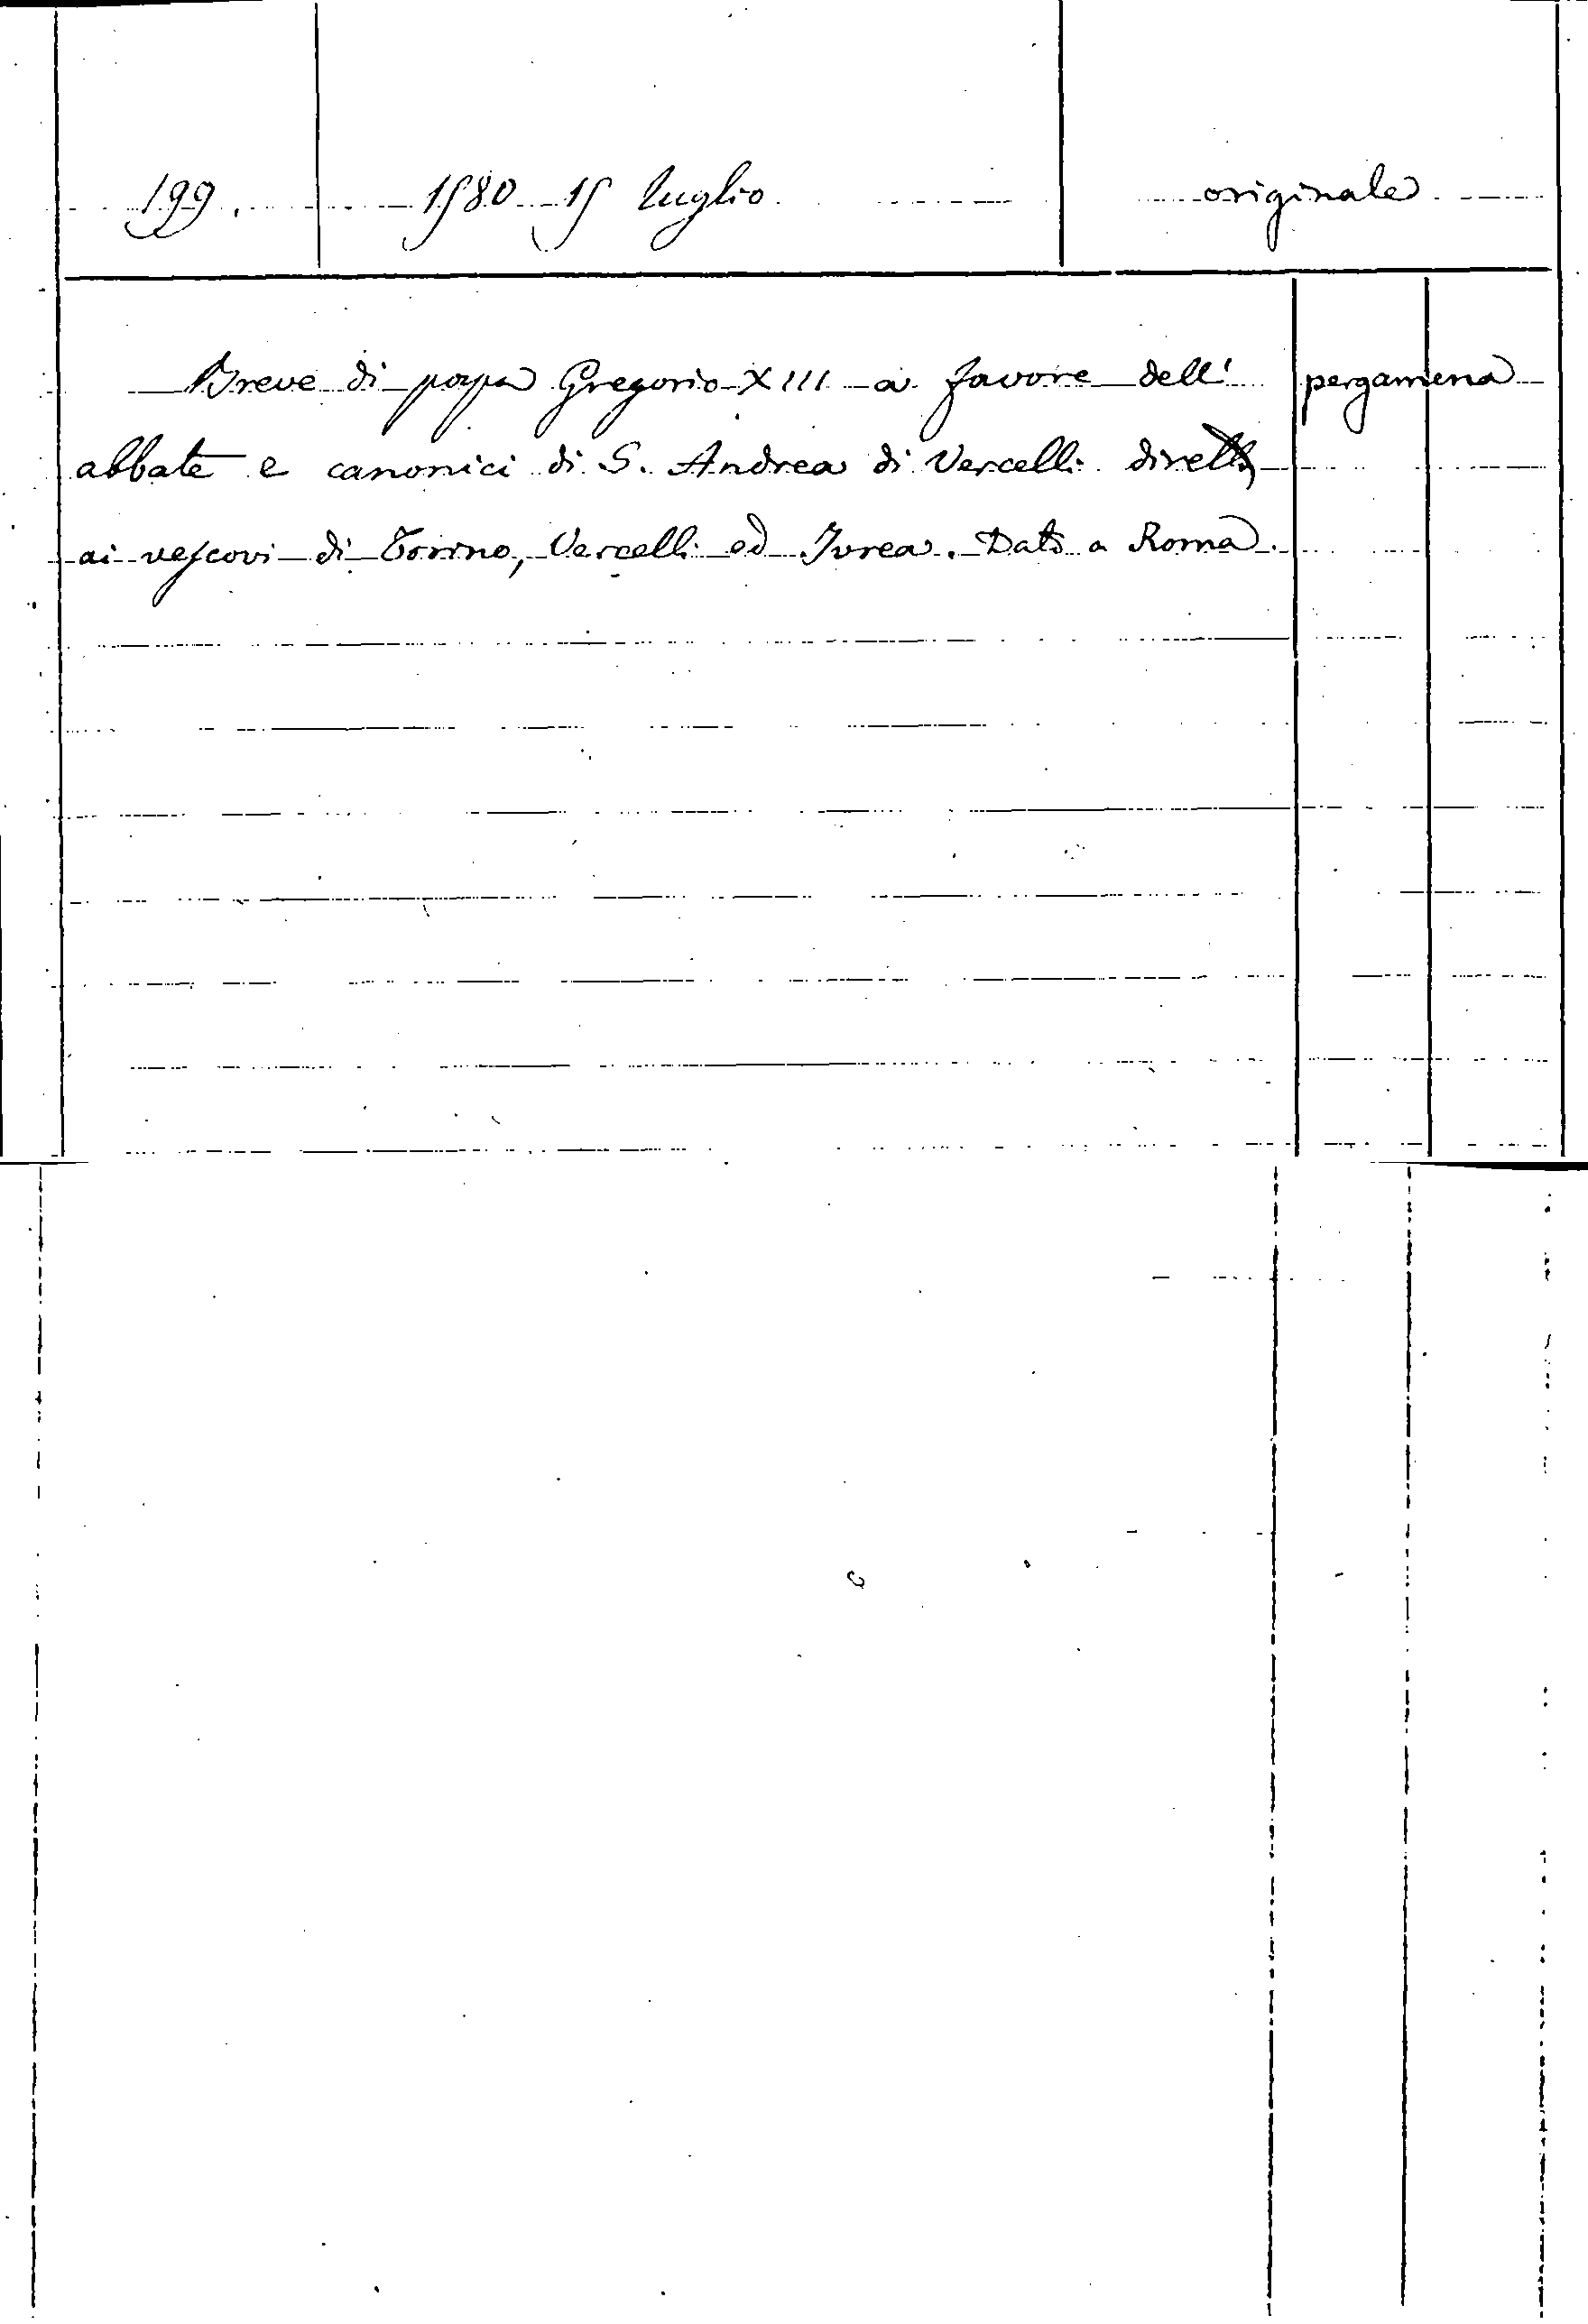 199. 1580 15 luglio originale
Breve di papa Gregorio XIII a favore dell' pergamena
abbate e canonici di S. Andrea di Vercelli diretto
ai vescovi di Torino, Vercelli ed Ivrea. Dato a Roma.